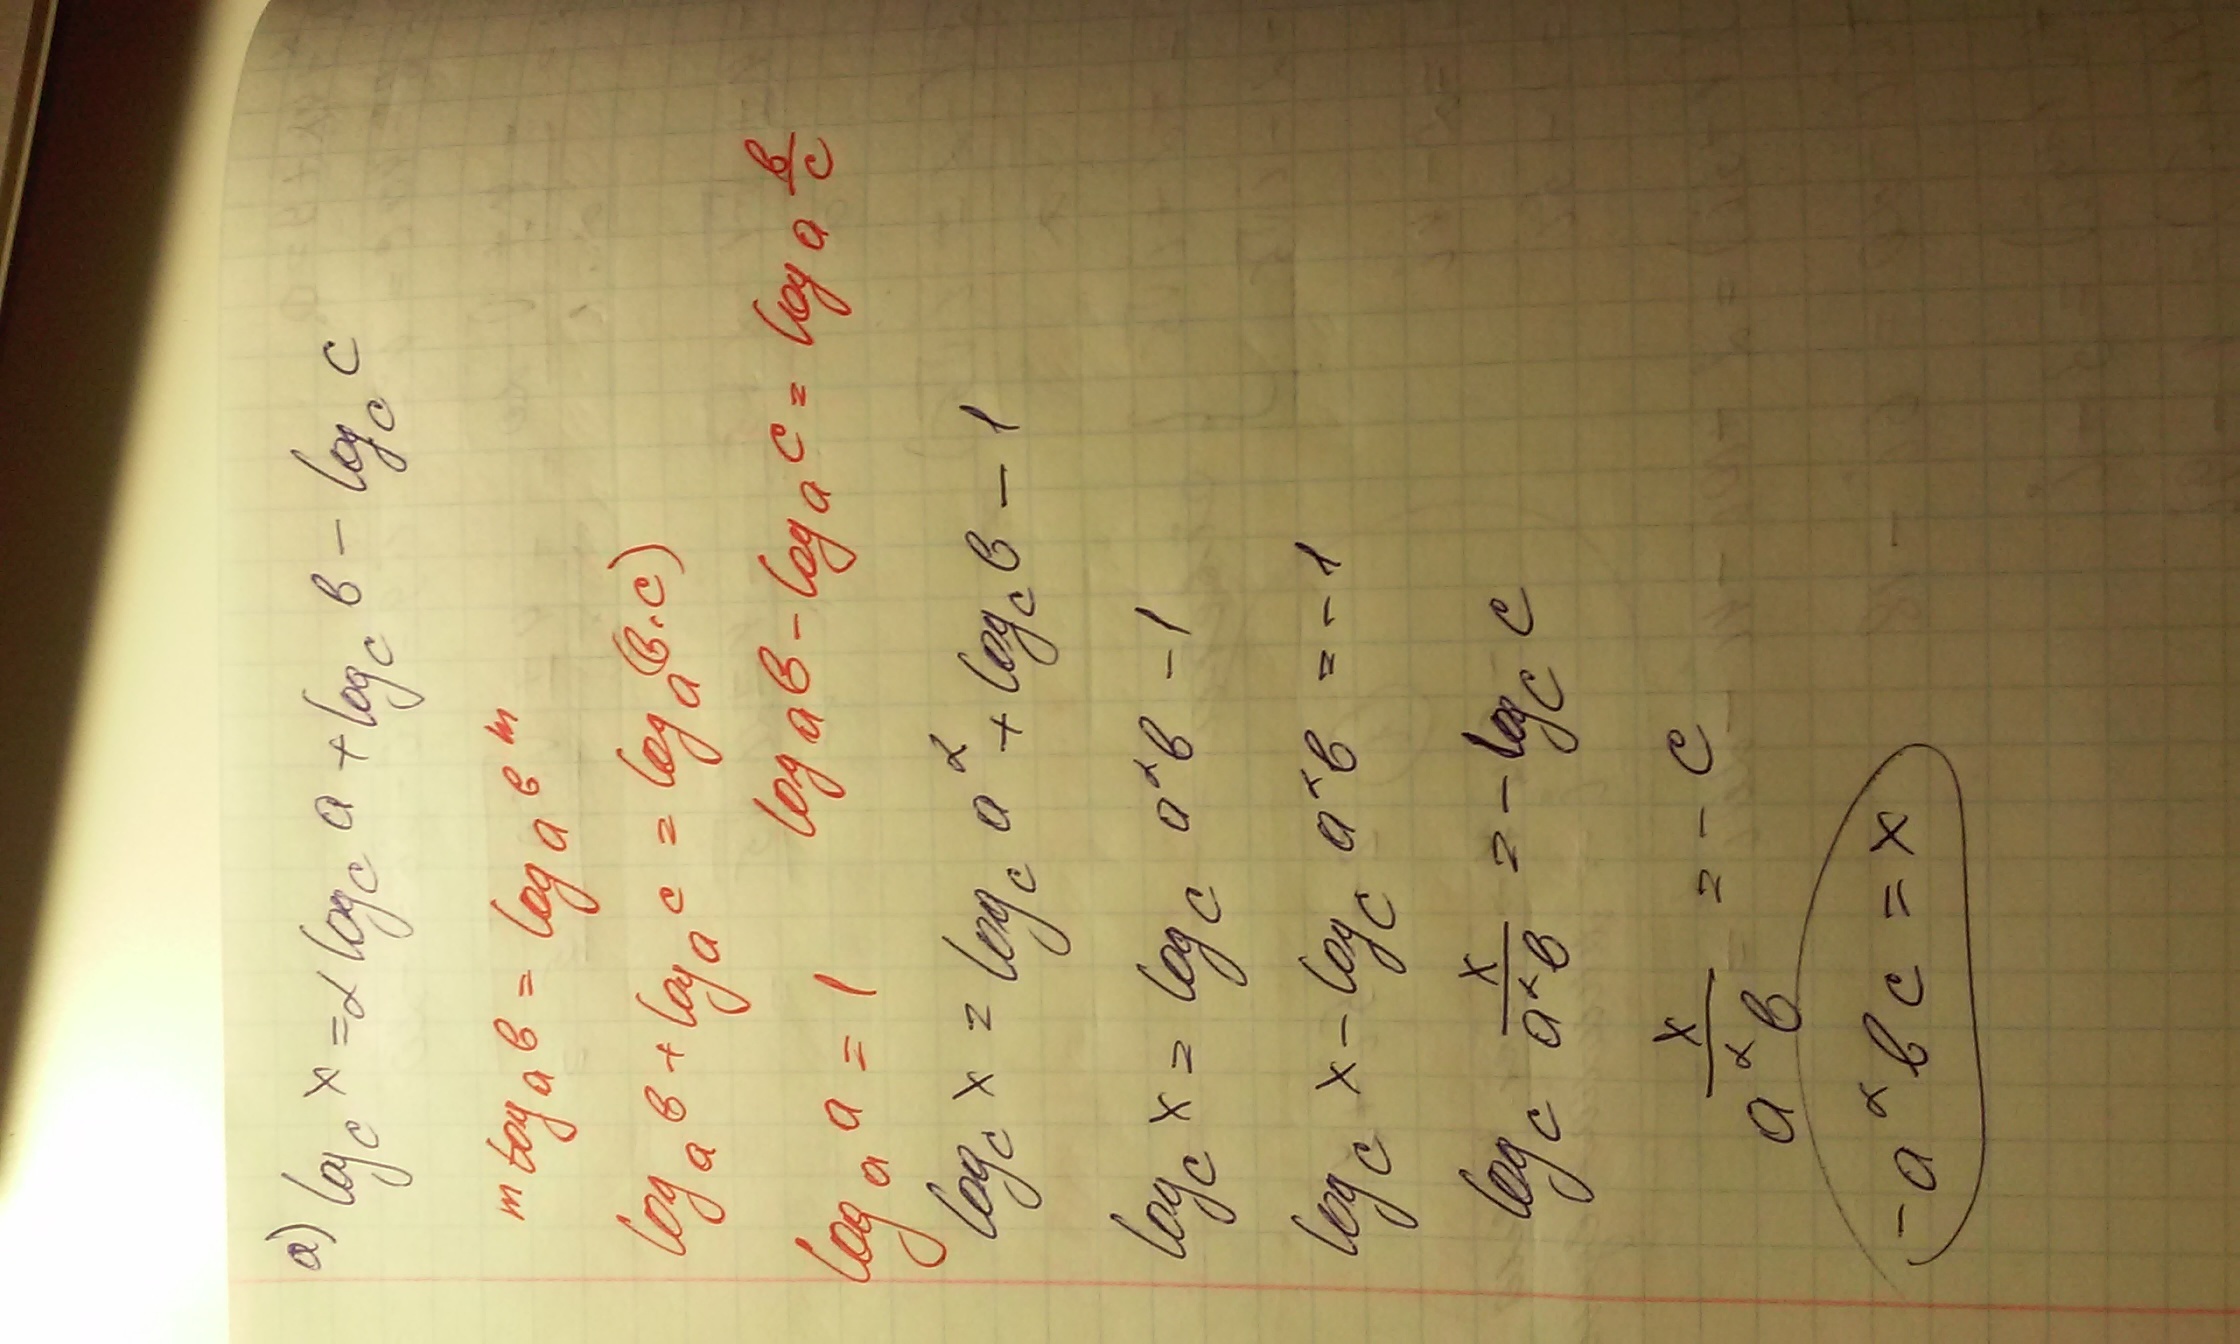 а) log_c x = 2 log_c a + log_c в - log_c c
m log_a в = log_a в^m
log_a в + log_a c = log_a (в·c)
log_a a = 1    log_a в - log_a c = log_a в/c
log_c x = log_c a² + log_c в - 1
log_c x = log_c a²в - 1
log_c x - log_c a²в = -1
log_c x/a²в = - log_c c
x/a²в = - c
-a²вc = x